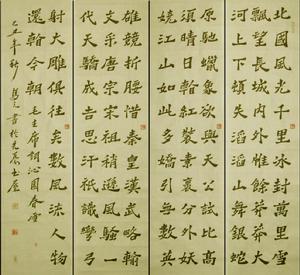 北國風光千里冰封萬里雪
飄望長城内外惟餘莽莽大
河上下頓失滔滔山舞銀蛇
原馳蠟象欲與天公試比高
須晴日看紅裝素裹分外妖
嬈江山如此多嬌引無數英
雄競折腰惜秦皇漢武略輸
文采唐宗宋祖稍遜風騷一
代天驕成吉思汗祇識彎弓
射大雕俱往矣數風流人物
還看今朝毛主席詞沁園春雪
己丑年秋書於